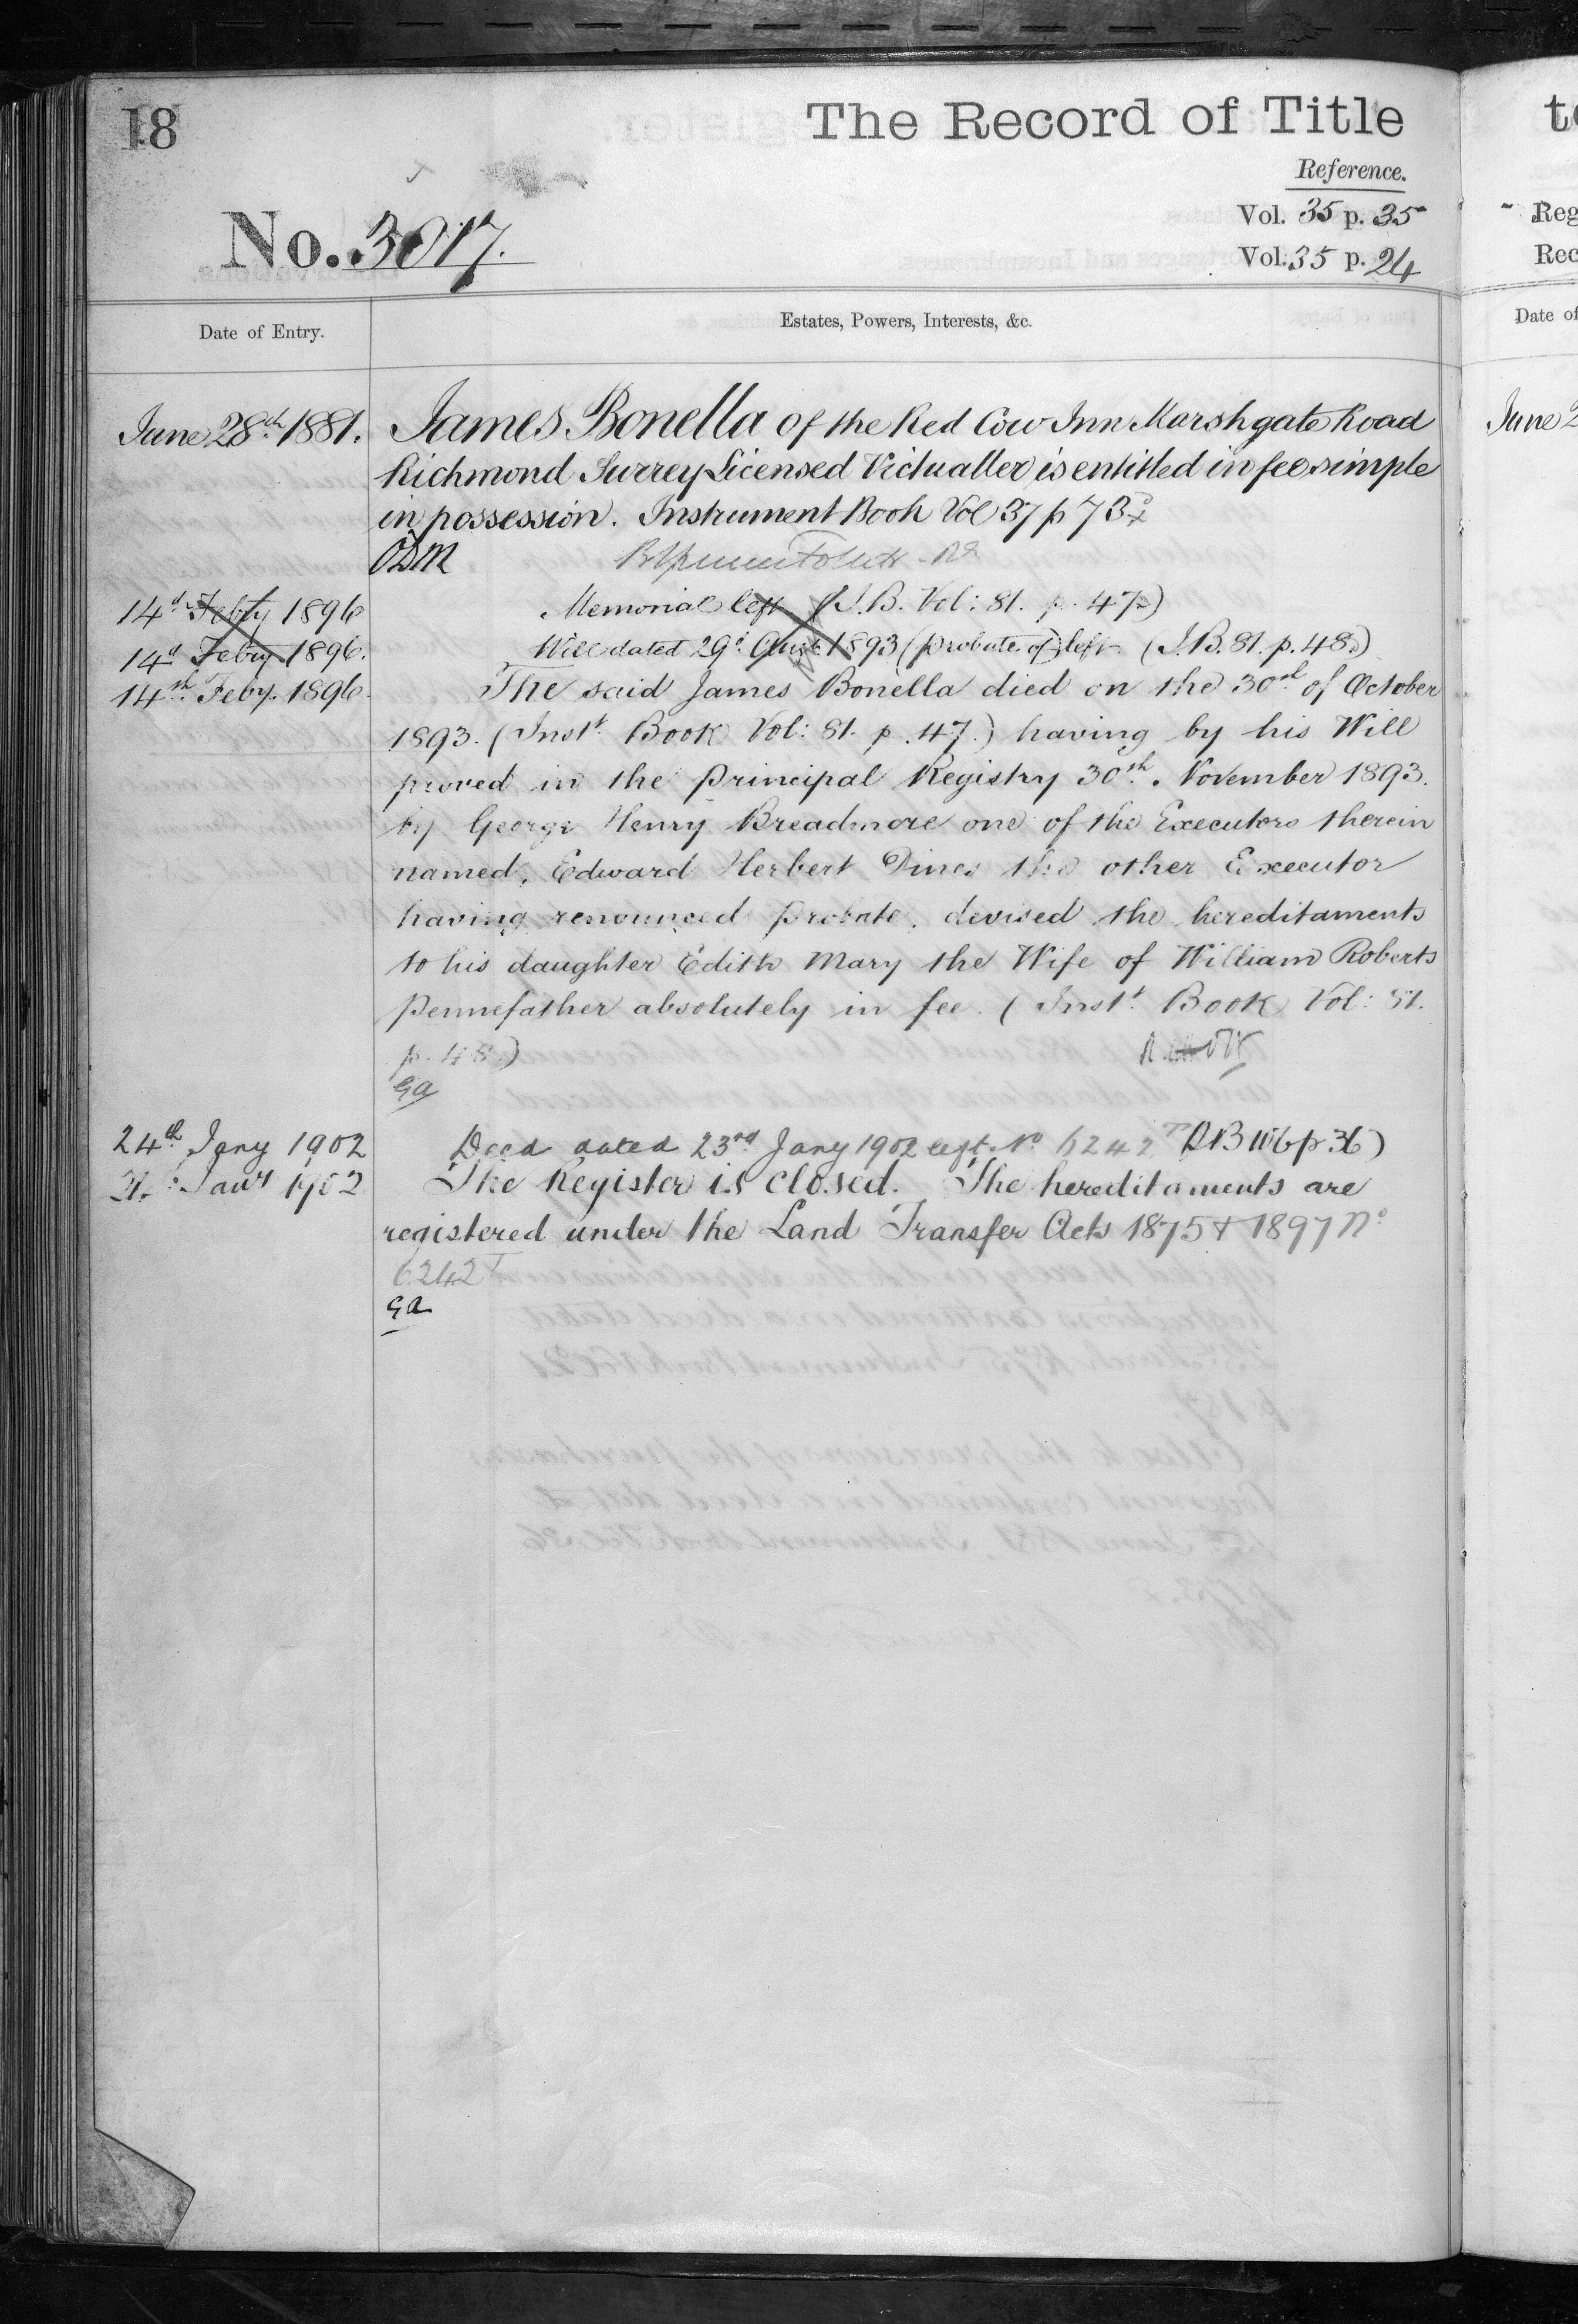 18
The Record of Title
Reference.
Vol. 35 p. 35
No. 3017.
Vol. 35 p. 24
Date of Entry.
Estates, Powers, Interests, &c.
June 28th 1881. James Bonella of the Red Cow Inn Marshgate Road
Richmond Surrey Licensed Victualler is entitled in fee simple
in possession. Instrument Book Vol 37 p 73
14th Feby 1896 Memorial left (I.B. Vol: 81. p. 47)
14th Feby 1896. Will dated 29th Augt. 1893 (probate of) left (I.B. 81. p. 48.)
14th Feby. 1896. The said James Bonella died on the 30th of October
1893. (Inst. Book Vol: 81. p. 47.) having by his Will
proved in the Principal Registry 30th. November 1893.
by George Henry Breadmore one of the Executors therein
named, Edward Herbert Dines the other Executor
having renounced Probate, devised the hereditaments
to his daughter Edith Mary the Wife of William Roberts
Pennefather absolutely in fee. (Inst. Book Vol: 81.
p. 48.)
GA
24th Jany 1902 Deed dated 23rd Jany 1902 left No 6242
1902 The Register is closed. The hereditaments are
registered under the Land Transfer Acts 1875 & 1897 No
6242
GA
to
Reg
Rec
Date of
June 2